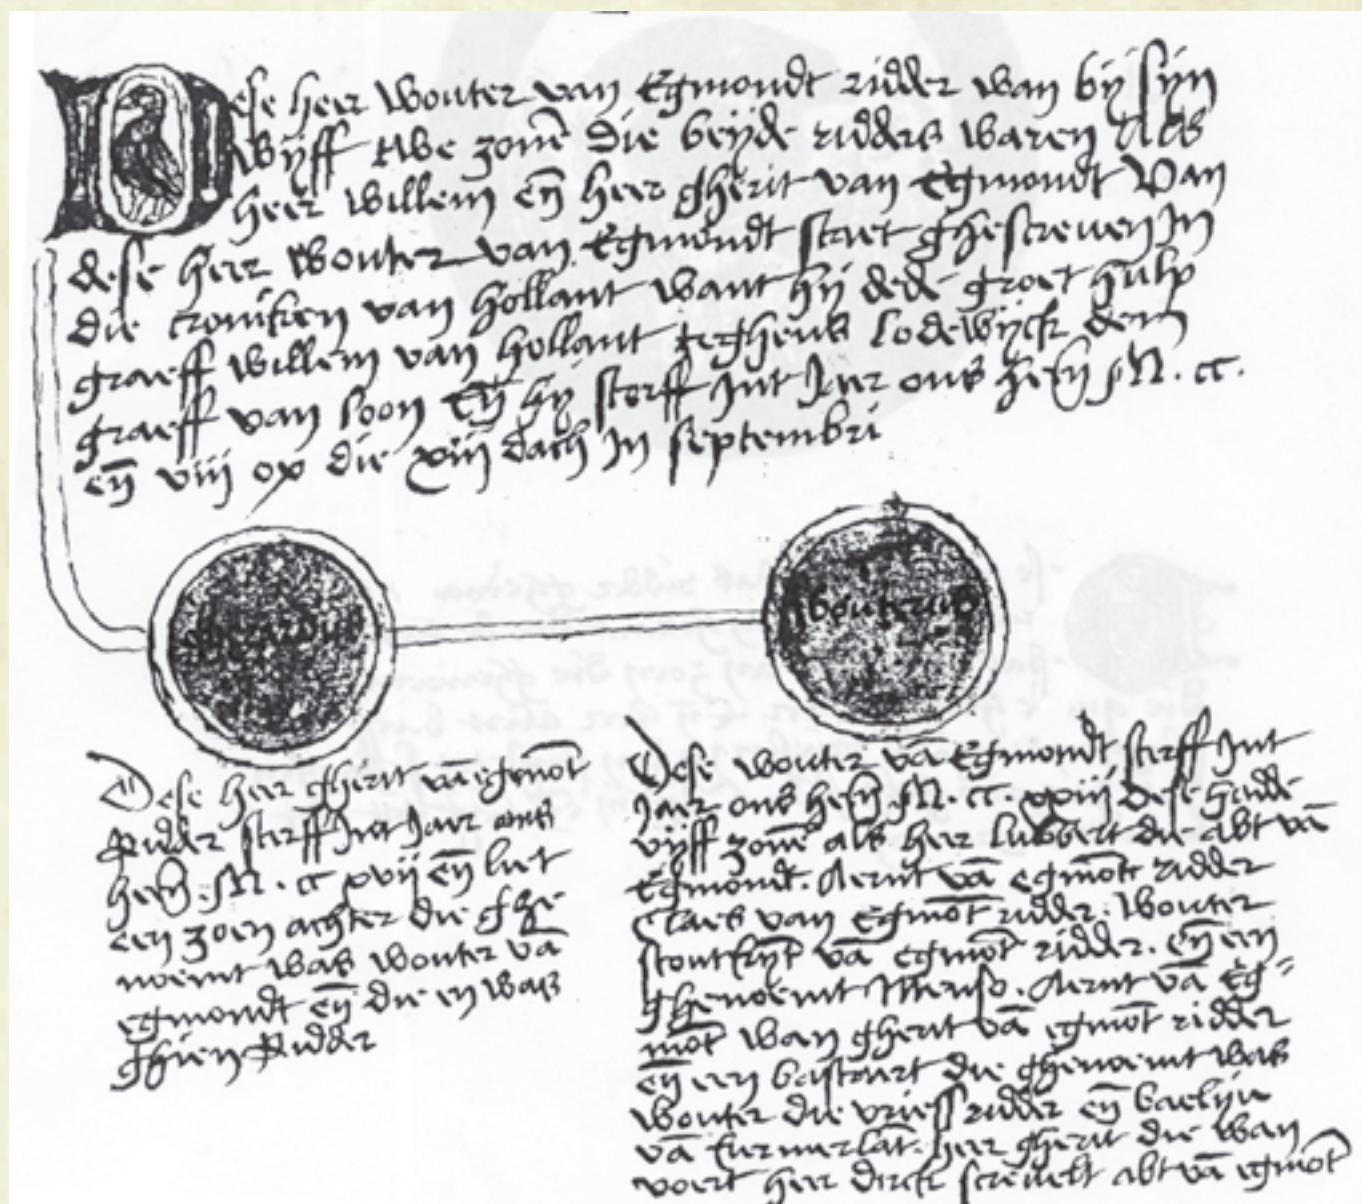 Dese heer Wouter van Egmondt ridder wan bij sijn
wijff twe zonē die beijde ridders waren als
heer willem eñ heer gherit van Egmondt Van
dese heer Wouter van Egmondt staet ghescreven In
die croniken van hollant want hij dede groet hulp
graeff willem van hollant teghens lodewijck dem
graeff van loon Eñ hij sterff Int Jaer ons heñ M. cc.
eñ viij op die xiij dach In septembri
gherardus
Wouterus
Dese heer gherit vā egmōt
Ridder sterff Int Jaer ons
heñ. M. cc xvij eñ liet
een zoen achter die ghe
noemt was wouter vā
egmondt eñ die en was
ghien Ridder
Dese wouter vā Egmondt sterff Int
Jaer ons heñ. M. cc. xxiij dese hadde
vijff zonē als heer lubbert die abt vā
Egmondt. Aernt vā egmōt ridder
Claes van Egmōt ridder. Wouter
stoutkijt vā egmōt ridder. eñ een
ghenoemt. Aernt vā Eg-
mōt wan gherit vā egmōt ridder
eñ een bastaert die ghenoemt was
wouter die vriess ridder eñ baeliju
vā kermerlāt. heer gherit die wan
voert heer dirck abt vā egmōt